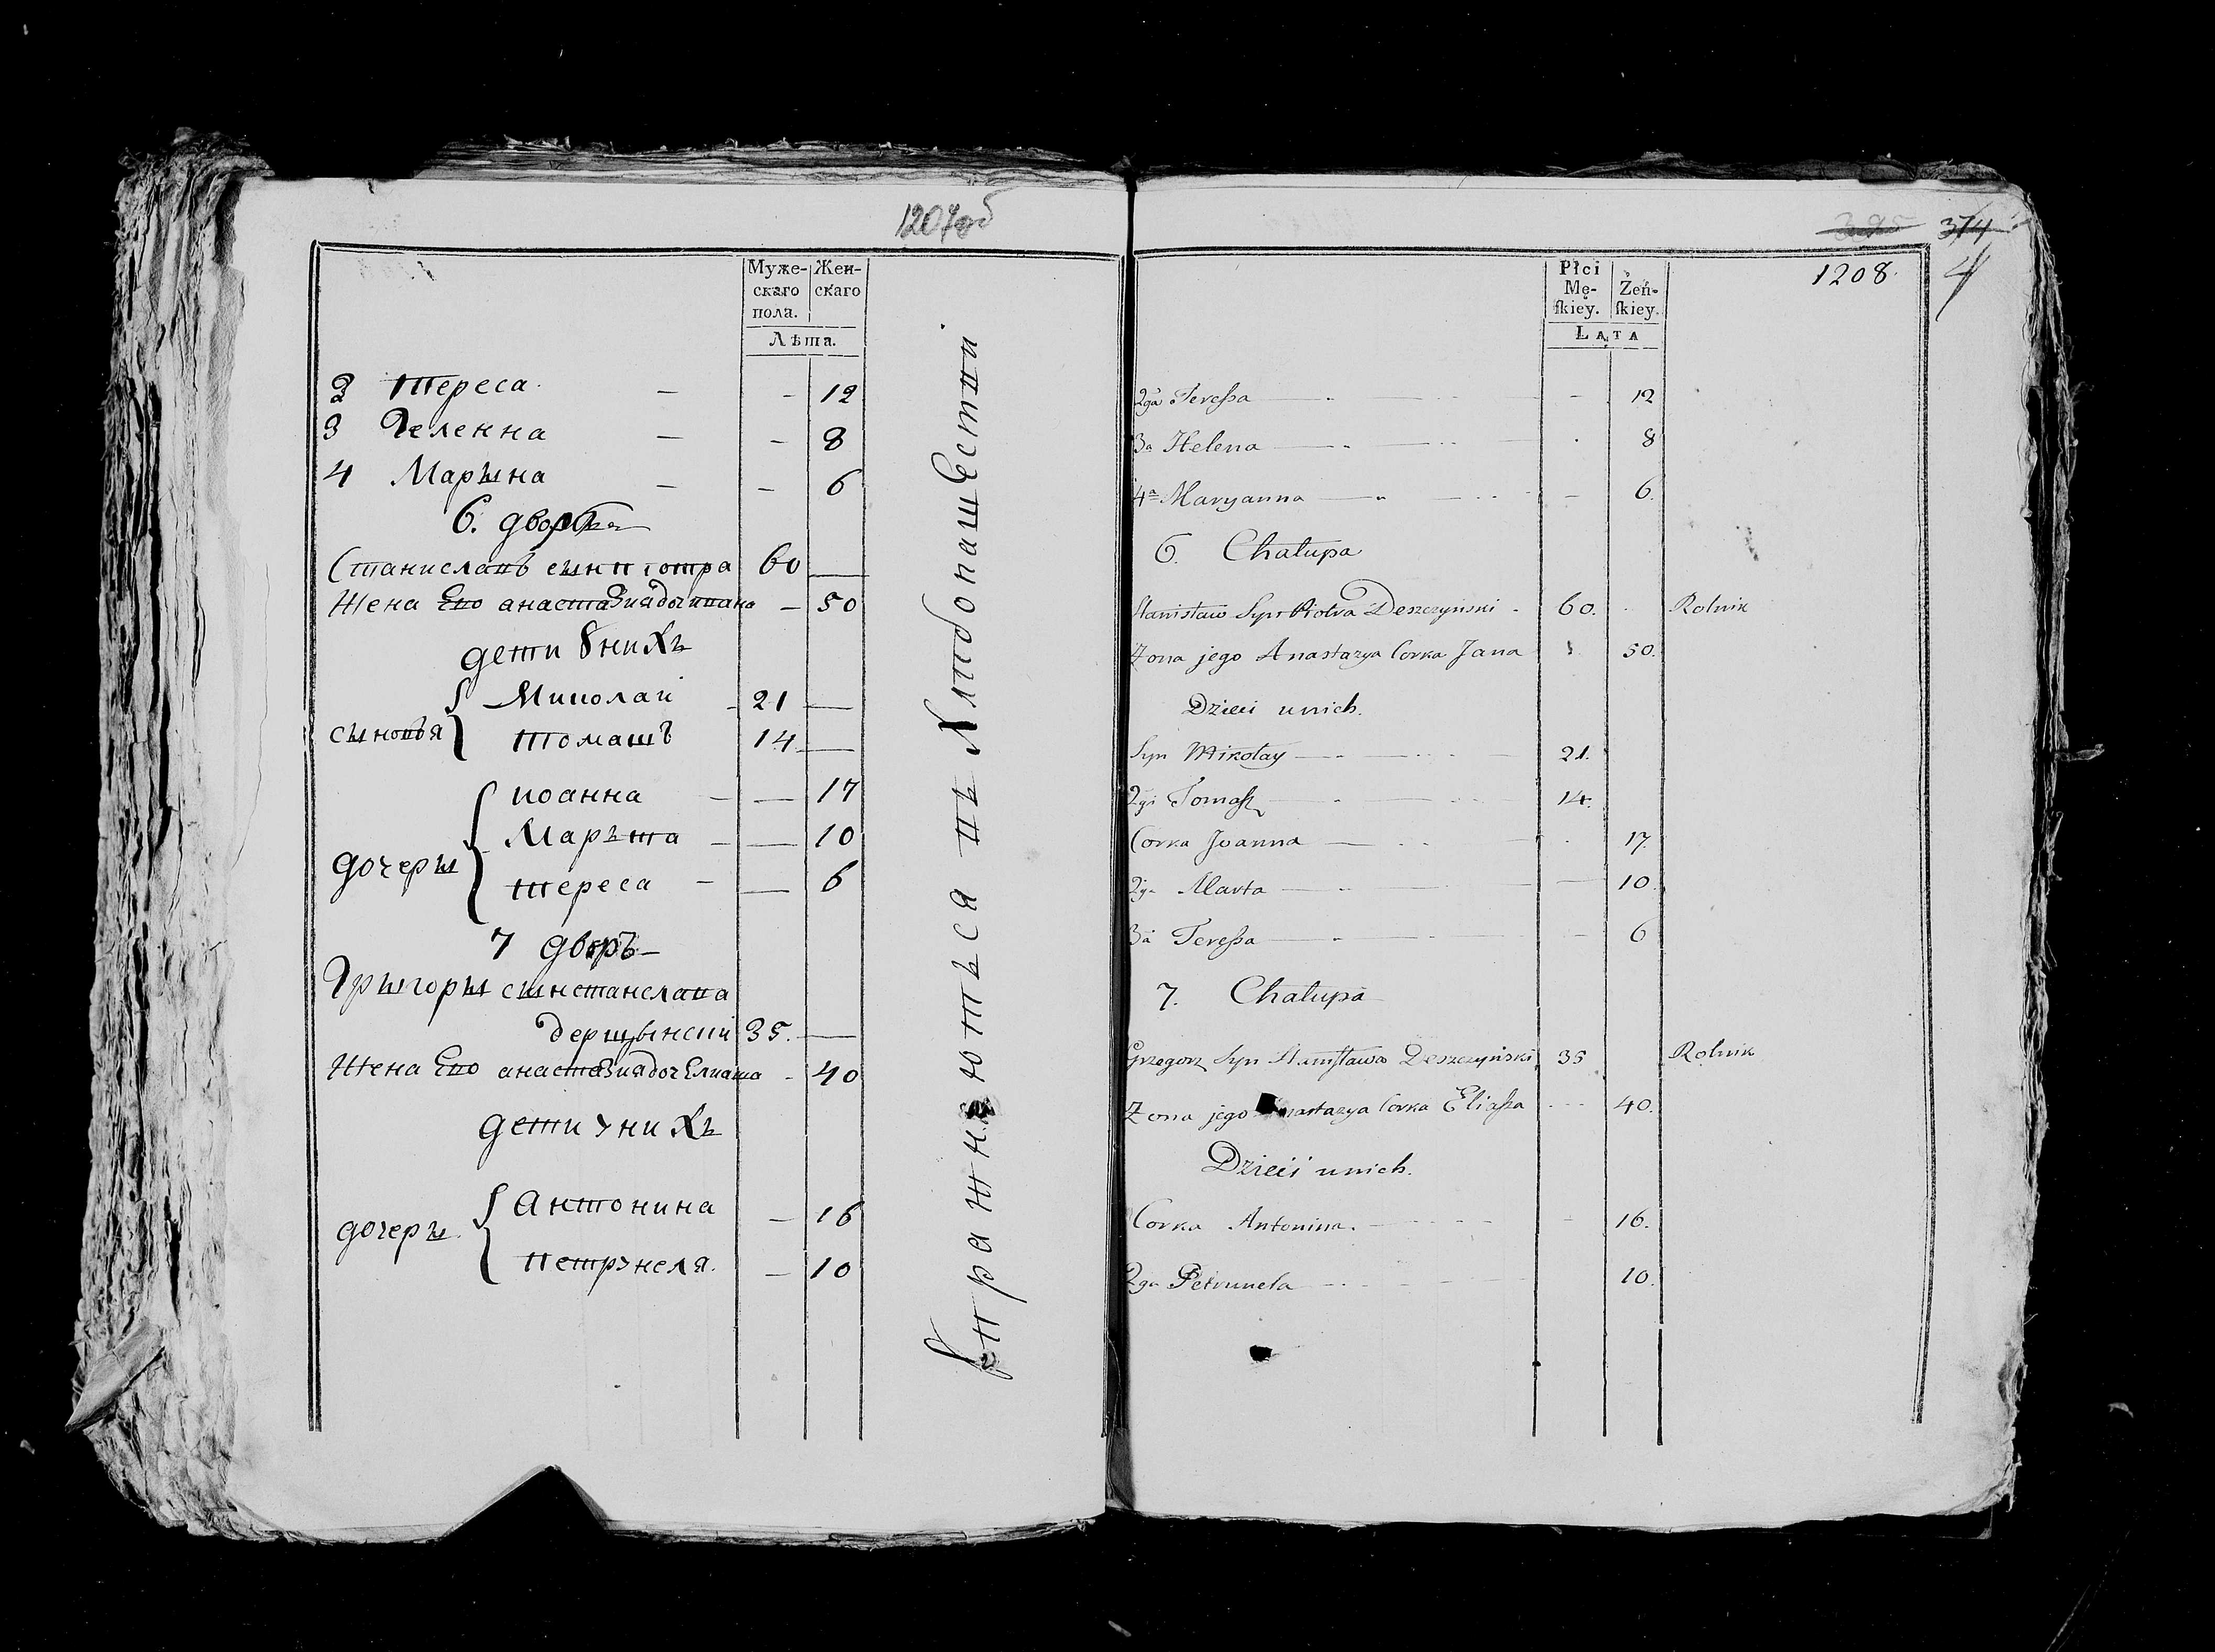 1207об
Муже- Жен-
скаго скаго
пола.
Лѣта.
2 Тереса. — - 12
3 Геленна — - 8
4 Марына — - 6
6. дворъ
Станиславъ сын петра 60 —
Жена Ево анастазиядочивана - 50
дети Ȣнихъ
сыновья { Миколаи - 21 —
Томашъ 14. —
дочеры { иоанна — — 17
Маръта — — 10
тереса — — 6
7 дворъ
Грыгоры сынстанслава
дерщынскии 35. —
Жена Ево анастазиядочЕлиаша - 40
дети у нихъ
дочеры { Антонина — 16
Петрунеля. — 10
Упражняютъся въ Хлибопашествии
374
4
1208.
Płci Żeń-
Mę- skiey.
skiey.
LATA
2ga Teressa 12
3a Helena 8
4a Maryanna 6.
6. Chałupa
Stanisław Syn Piotra Deszczyński 60. Rolnik
Zona jego Anastazya Corka Jana 50.
Dzieci unich.
Syn Mikołay 21.
2gi Tomasz 14.
Corka Joanna 17.
2ga Marta 10.
3a Teressa 6
7. Chałupa
Grzegorz Syn Stanisława Deszczyński 35 Rolnik
Zona jego Anastazya Corka Eliasza 40.
Dzieci unich.
Corka Antonina. 16.
2ga Petrunela 10.